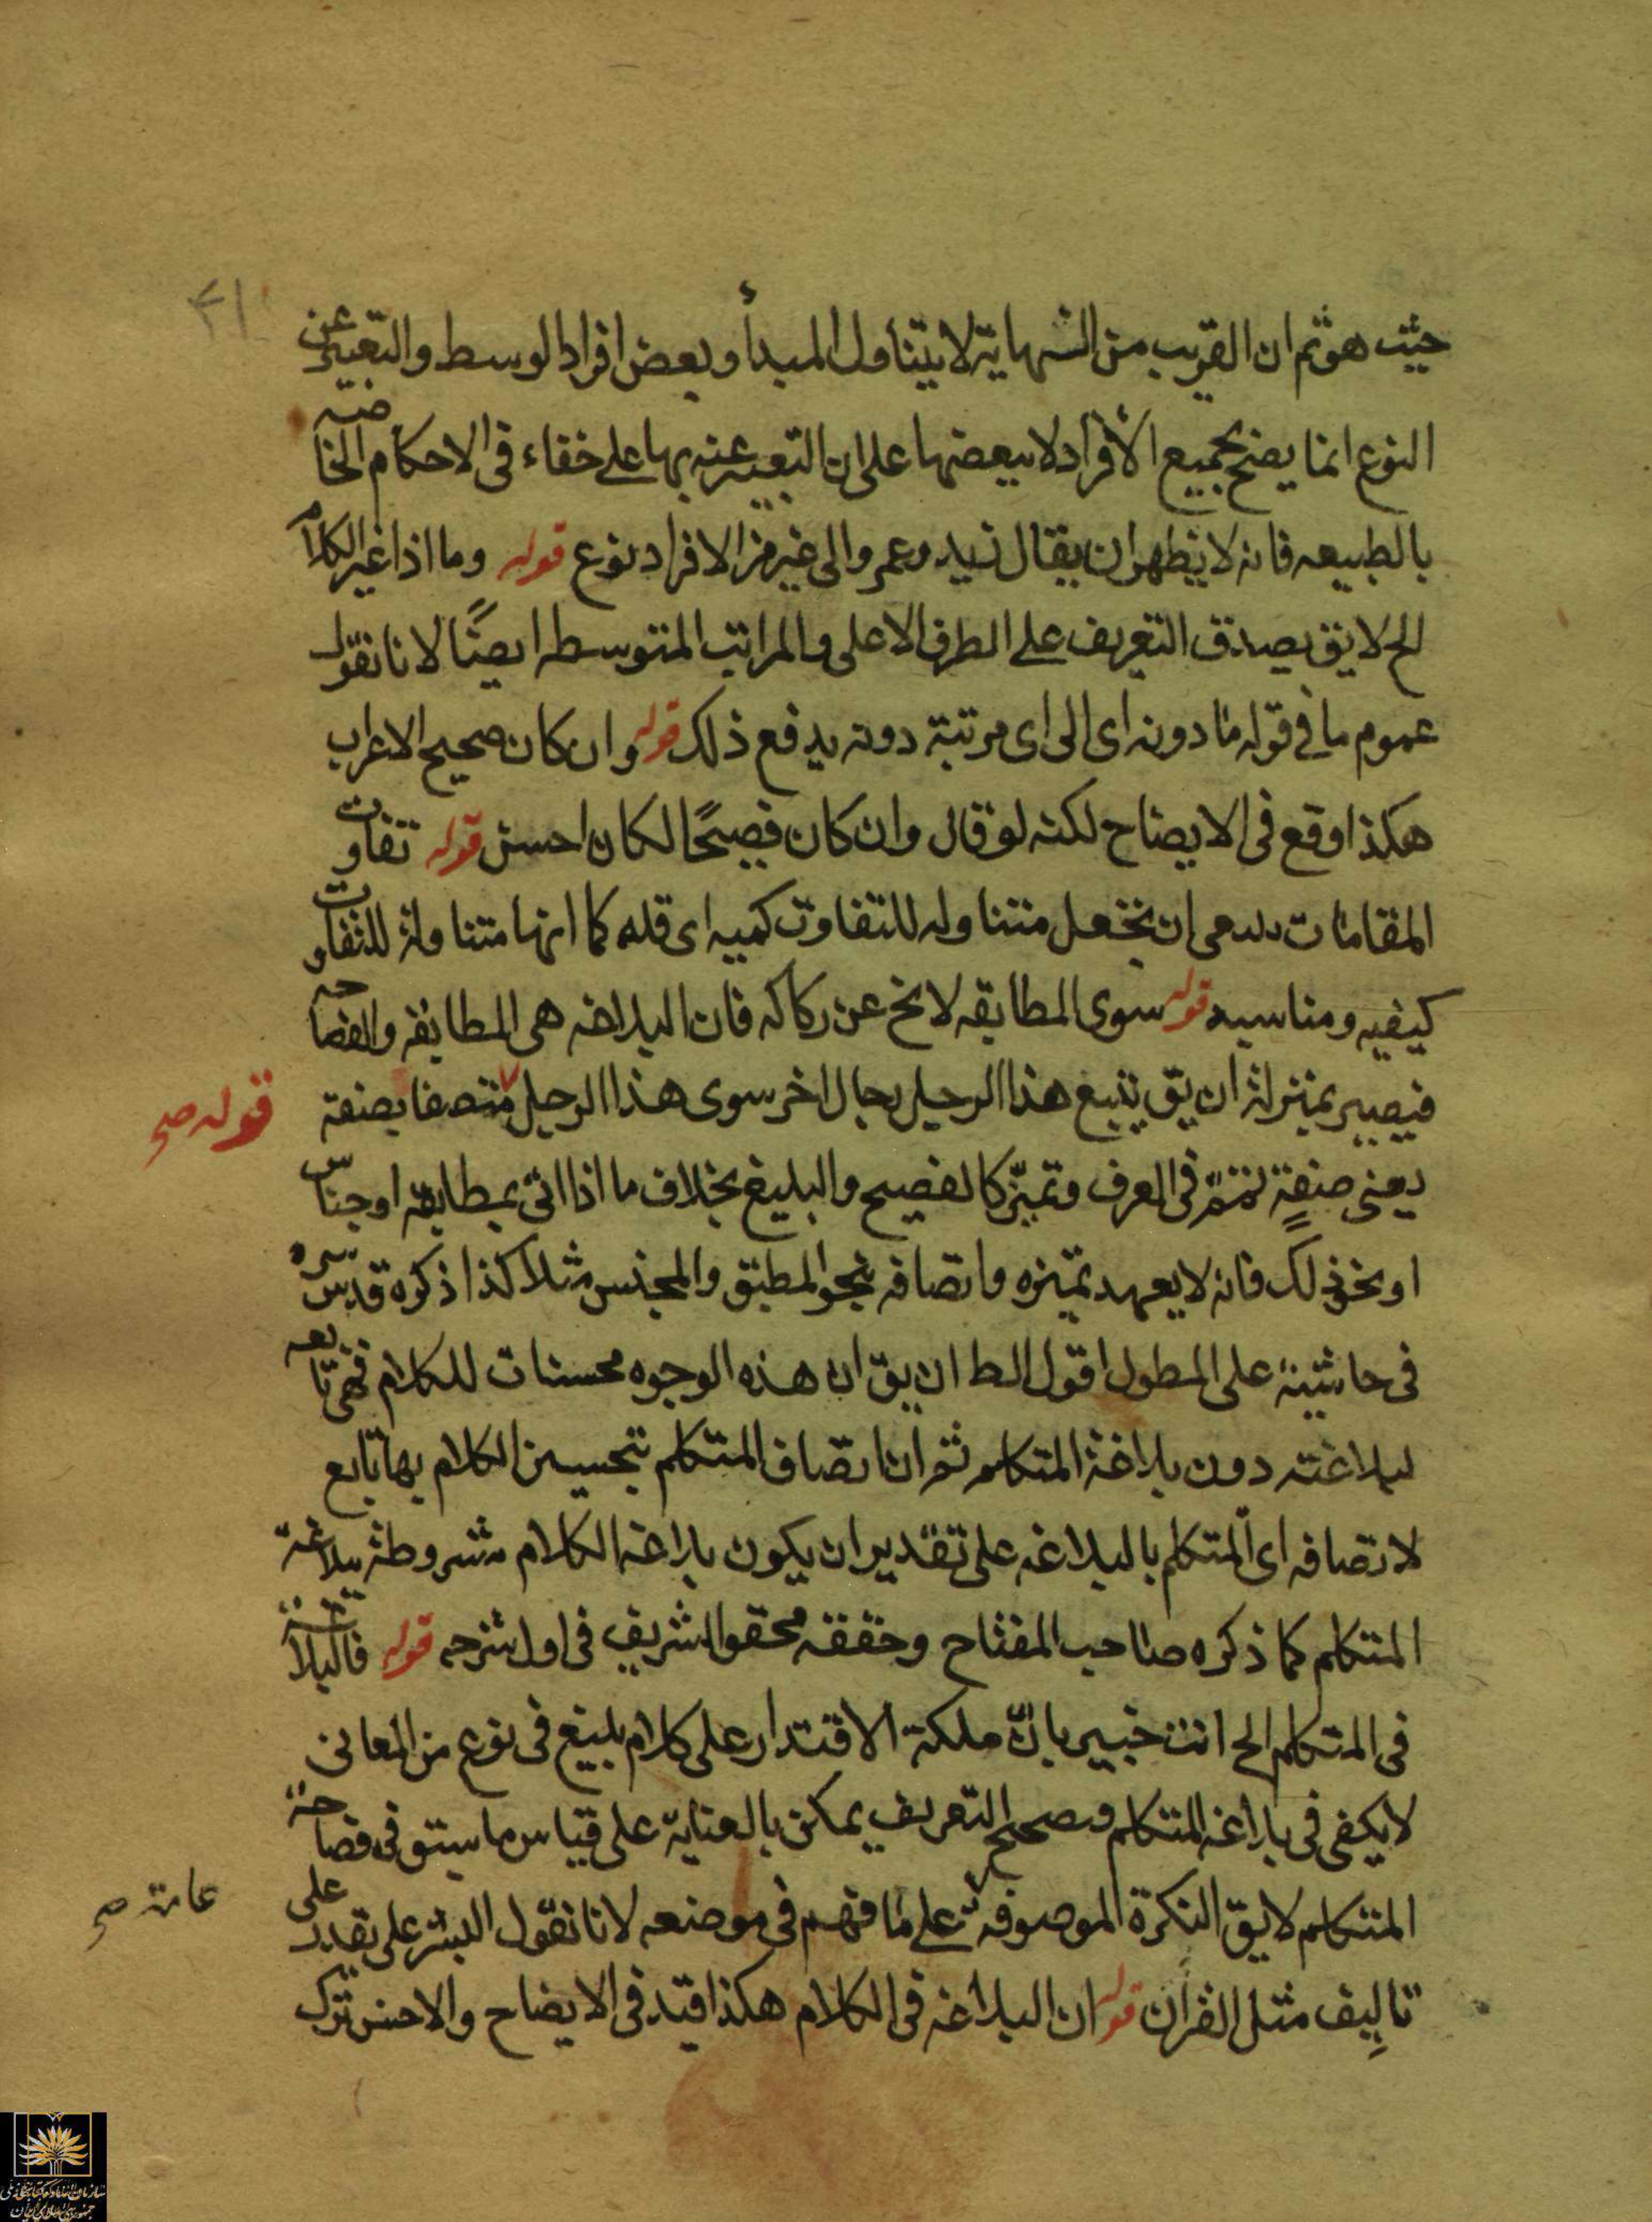 ۴۱
حيث هو ثم ان القريب من النهاية لا يتناول المبدأ وبعض افراد الوسط والتعبير عن
النوع انما يصح بجميع الأفراد لا ببعضها على ان التعبير عنه بها على خفاء فى الاحكام الخاصه
بالطبيعه فانه لا يظهر ان يقال زيد وعمرو الى غير من الافراد نوع قوله وما اذا غير الكلام
الخ لا يق يصدق التعريف على الطرف الاعلى والمراتب المتوسطه ايضًا لانا نقول
عموم ما فى قوله ما دونه اى الى اى مرتبة دونه يدفع ذلك قوله وان كان صحيح الاعراب
هكذا وقع فى الايضاح لكنه لو قال وان كان فصيحًا لكان احسن قوله تفاوت
المقامات ان تجعل متناوله للتفاوت كميه اى قله كما انها متناولة للتفاوت
كيفيه ومناسبه قوله سوى المطابقه لا يخ عن ركاكه فان البلاغه هى المطابقه والفصاحه
فيصير بمنزلة ان يق يتبع هذا الرجل رجال اخر سوى هذا الرجل متصفا بصفة
قوله صح
يعنى صفةٍ فى العرف وتميّز كالفصيح والبليغ بخلاف ما اذا اتى بمطابقة او جناس
او نحو ذلك فانه لا يعهد تميزه واتصافه بنحو المطبق والمجنس مثلا كذا ذكره قدس سره
فى حاشيته على المطول اقول الظ ان يق ان هذه الوجوه محسنات للكلام فهى تابعه
لبلاغته دون بلاغة المتكلم ثم ان اتصاف المتكلم بتحسين الكلام بها تابع
لاتصافه اى المتكلم بالبلاغه على تقدير ان يكون بلاغه الكلام مشروطة ببلاغة
المتكلم كما ذكره صاحب المفتاح وحققه محقق الشريف فى اول شرحه قوله فالبلاغة
فى المتكلم الخ انت خبير بانّ ملكة الاقتدار على كلام بليغ فى نوع من المعانى
لا يكفى فى بلاغه المتكلم وتصحيح التعريف يمكن بالعناية على قياس ما سبق فى فصاحة
المتكلم لا يق النكرة الموصوفه على ما فهم فى موضعه لانا نقول البشر على يقدر على
عامة صح
تاليف مثل القرآن قوله ان البلاغه فى الكلام هكذا قيد فى الايضاح والاحسن ترك